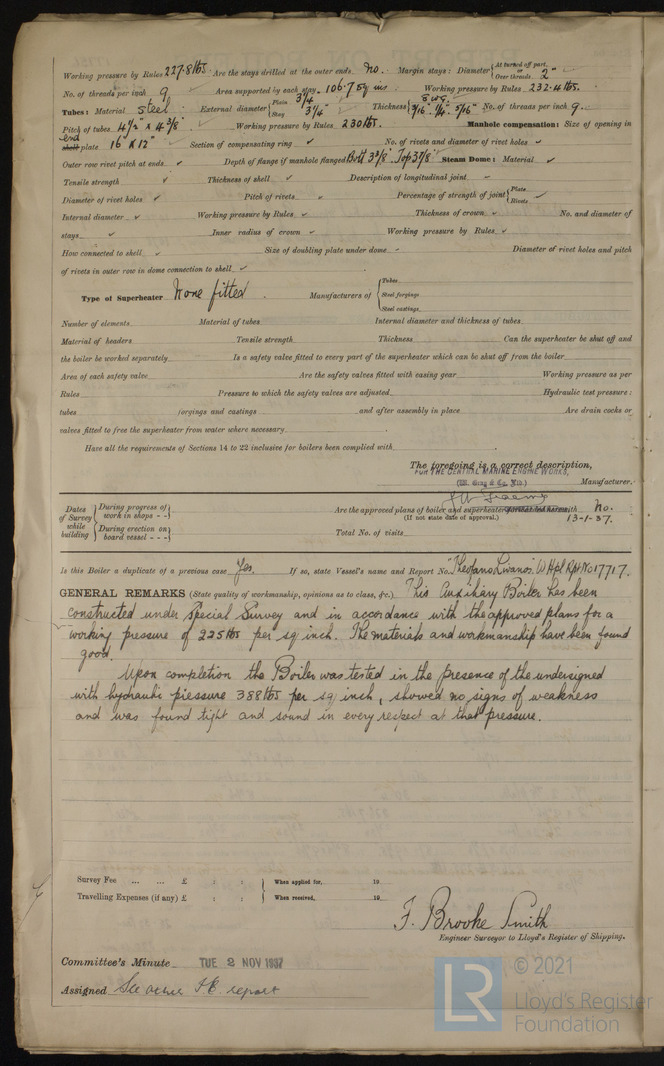 Working pressure by Rules 227.8 lbs Are the stays drilled at the outer ends no. Margin stays: Diameter { At turned off part, Over threads 2"
No. of threads per inch 9 Area supported by each stay 106.75 Working pressure by Rules 232.4 lbs.
Tubes: Material steel External diameter { Plain 3 1/4 Stay 3 1/4" Thickness { 8 WG 3/16" 1/4" 5/16" No. of threads per inch 9.
Pitch of tubes 4 1/2" x 4 3/8" Working pressure by Rules 230 lbs. Manhole compensation: Size of opening in
end shell plate 16" x 12" Section of compensating ring No. of rivets and diameter of rivet holes
Outer row rivet pitch at ends Depth of flange if manhole flanged Bott 3 3/8" Top 3 7/8" Steam Dome: Material
Tensile strength Thickness of shell Description of longitudinal joint
Diameter of rivet holes Pitch of rivets Percentage of strength of joint { Plate Rivets
Internal diameter Working pressure by Rules Thickness of crown No. and diameter of
stays Inner radius of crown Working pressure by Rules
How connected to shell Size of doubling plate under dome Diameter of rivet holes and pitch
of rivets in outer row in dome connection to shell
Type of Superheater None fitted. Manufacturers of { Tubes Steel forgings Steel castings
Number of elements Material of tubes Internal diameter and thickness of tubes
Material of headers Tensile strength Thickness Can the superheater be shut off and
the boiler be worked separately Is a safety valve fitted to every part of the superheater which can be shut off from the boiler
Area of each safety valve Are the safety valves fitted with easing gear Working pressure as per
Rules Pressure to which the safety valves are adjusted Hydraulic test pressure:
tubes forgings and castings and after assembly in place Are drain cocks or
valves fitted to free the superheater from water where necessary
Have all the requirements of Sections 14 to 22 inclusive for boilers been complied with
The foregoing is a correct description,
FOR THE CENTRAL MARINE ENGINE WORKS,
(Wm. Gray & Co. Ltd.) Manufacturer.
Dates of Survey while building { During progress of work in shops - - During erection on board vessel - - } Are the approved plans of boiler and superheater forwarded herewith No.
(If not state date of approval.) 13-1-37.
Total No. of visits
Is this Boiler a duplicate of a previous case Yes. If so, state Vessel's name and Report No. "Theofano Livanos" W Hpl Rpt No 17717.
GENERAL REMARKS (State quality of workmanship, opinions as to class, &c.) This Auxiliary Boiler has been
constructed under Special Survey and in accordance with the approved plans for a
working pressure of 225 lbs per sq inch. The materials and workmanship have been found
good.
Upon completion the Boiler was tested in the presence of the undersigned
with hydraulic pressure 388 lbs per sq inch, showed no signs of weakness
and was found tight and sound in every respect at that pressure.
Survey Fee ... ... £ : : } When applied for, 19
Travelling Expenses (if any) £ : : } When received, 19
F. Brooke Smith
Engineer Surveyor to Lloyd's Register of Shipping.
Committee's Minute TUE 2 NOV 1937
Assigned See other report
LR © 2021
Lloyd's Register
Foundation